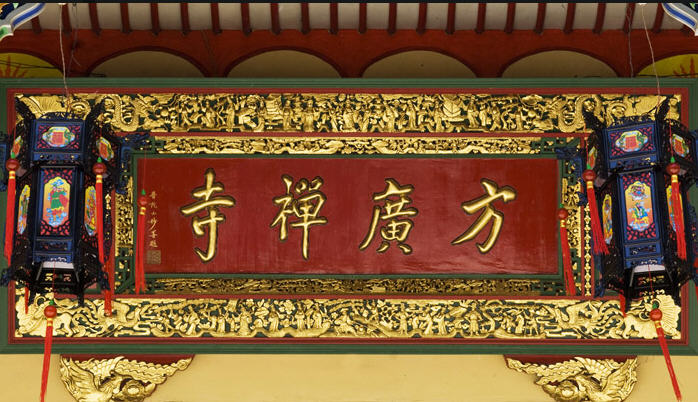 方廣禪寺